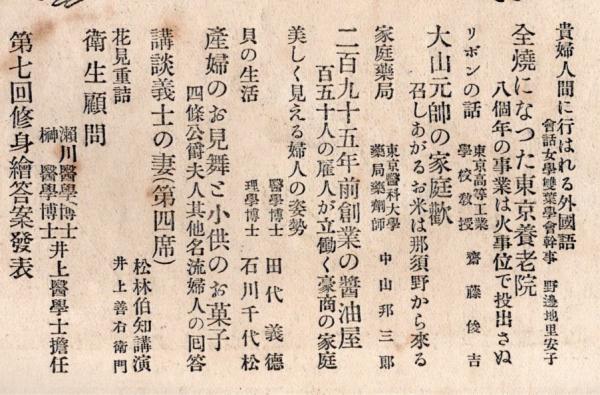 貴婦人間に行はれる外國語
會話女學雙葉學會幹事 野邊地里安子
全燒になつた東京養老院
八個年の事業は火事位で投出さぬ
リボンの話
東京高等工業學校教授 齋藤俊吉
大山元帥の家庭歡
召しあがるお米は那須野から來る
家庭藥局
東京醫科大學藥局藥劑師 中山邦三郎
二百九十五年前創業の醬油屋
百五十人の雇人が立働く豪商の家庭
美しく見える婦人の姿勢
醫學博士 田代義德
貝の生活
理學博士 石川千代松
產婦のお見舞と小供のお菓子
四條公爵夫人其他名流婦人の囘答
講談義士の妻(第四席)
松林伯知講演
花見重詰
井上善右衛門
衛生顧問
瀨川醫學博士 榊醫學博士 井上醫學士擔任
第七回修身繪答案發表